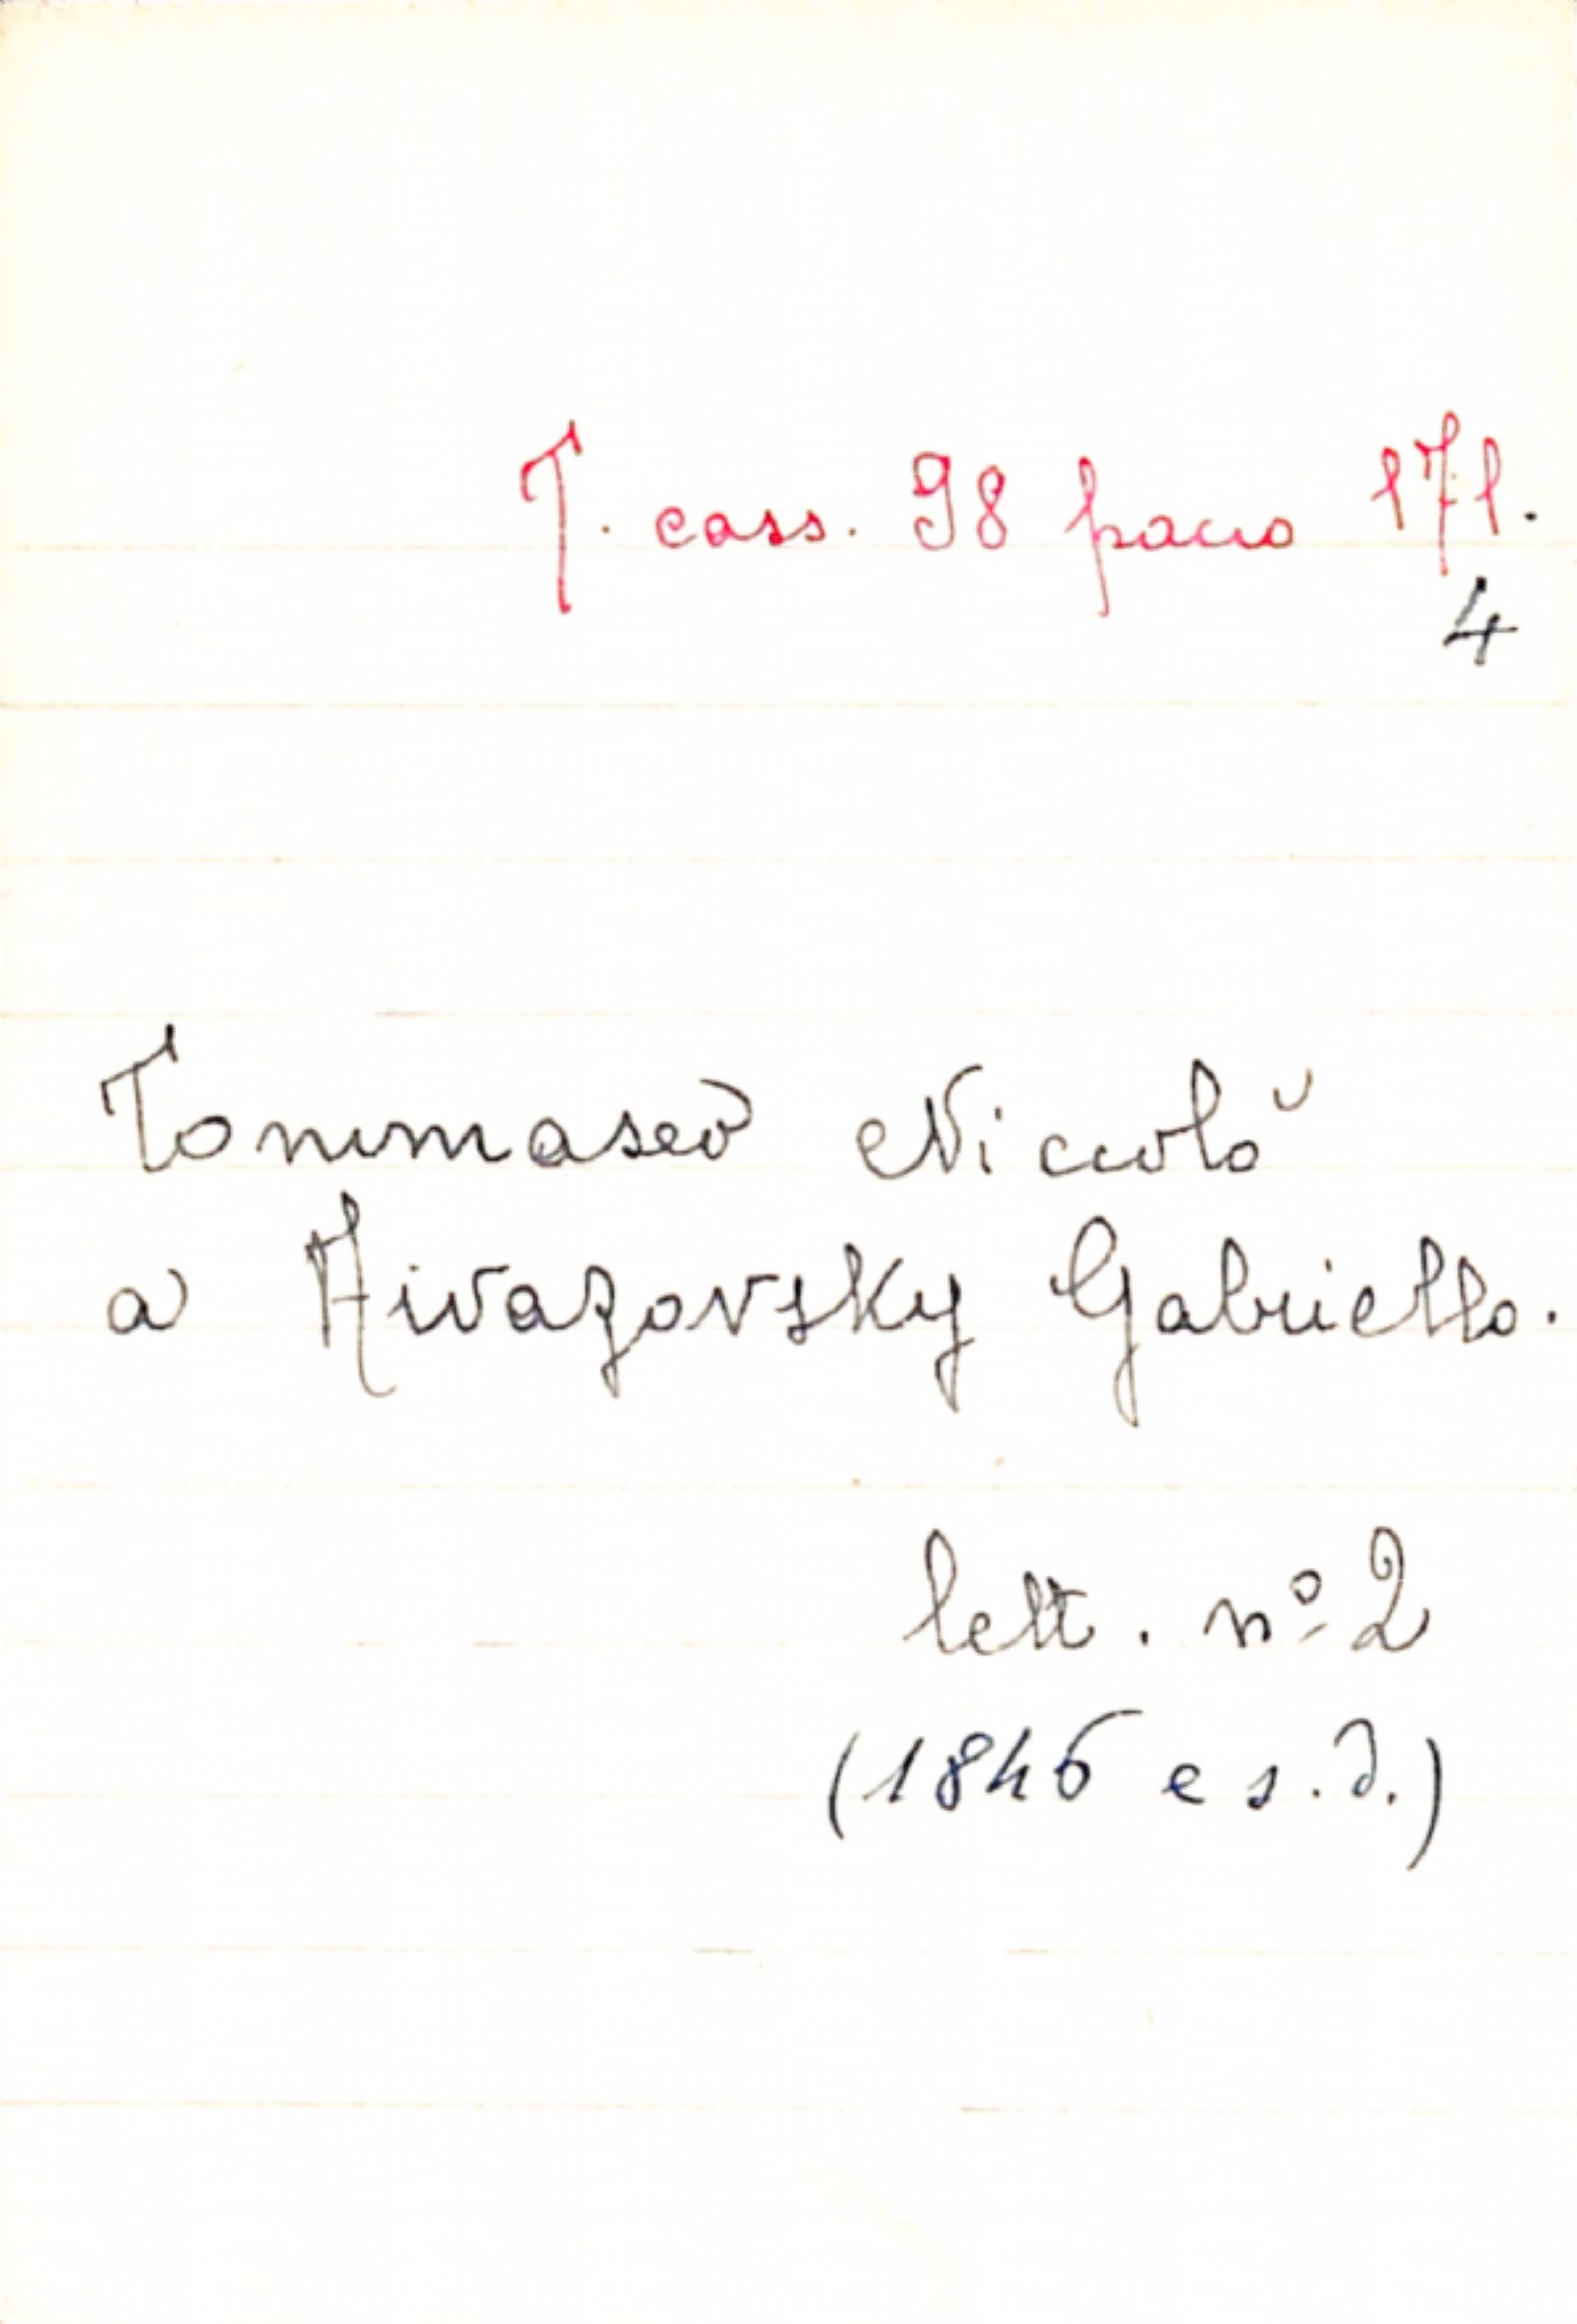 T. cass. 98 pacco 171.
4
Tommaseo Niccolò
a Aivazovsky Gabriello.
lett. nº 2
(1846 e s.d.)